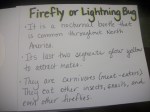 Firefly or Lightning Bug
• It is a nocturnal beetle that
is common throughout North
America.
• Its last two segments glow yellow
to attract mates.
• They are carnivores (meat-eaters)
They eat other insects, snails, and
even other fireflies.